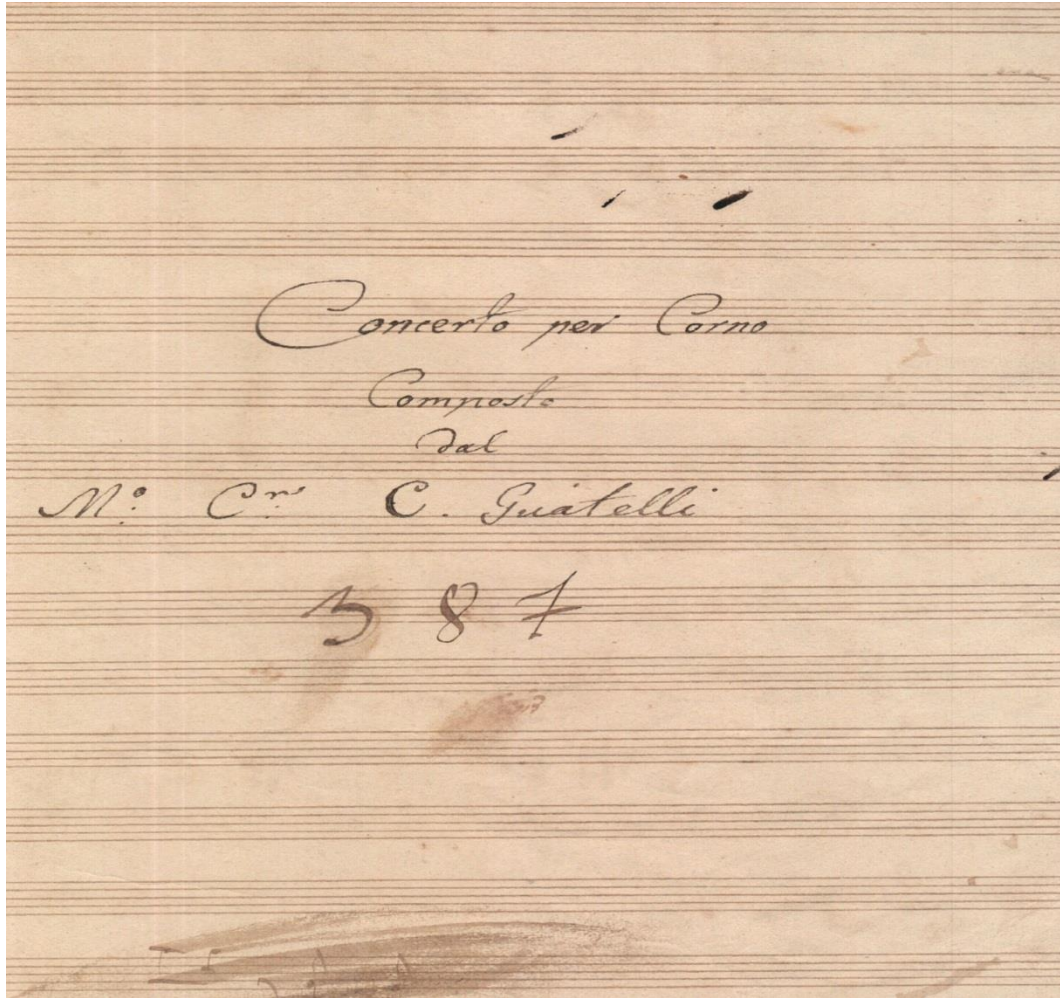 Concerto per Corno
Composto
dal
M.º C.r C. Guatelli
387